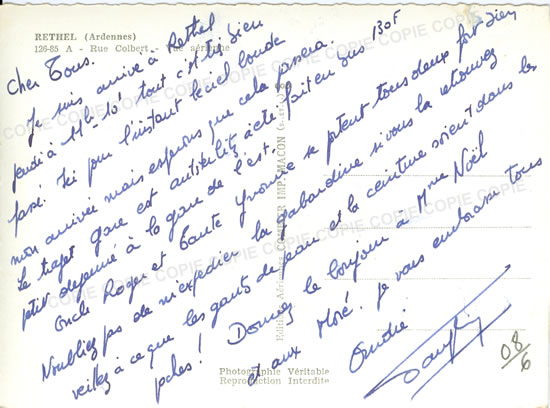 RETHEL (Ardennes)
126-85 A - Rue Colbert - Vue aérienne
130F
Cher Tous.
Je suis arrivé à Rethel
jeudi à 11h-10' tout c'est très bien
passé. Ici pour l'instant le ciel boude
mon arrivée mais espérons que cela passera.
Le trajet gare est a été fait en bus
petit déjeuné à la gare de l'est.
Oncle Roger et Tante Yvonne se portent tous deux fort bien
N'oubliez pas de m'expédier la gabardine si vous la retrouvez
veillez à ce que les gants de peau et la ceinture soient dans les
poches! Donnez le bonjour à Mme Noël
et aux Moré. Je vous embrasse tous
André
08/6
Photographie Véritable
Reproduction Interdite
COPIE COPIE COPIE COPIE